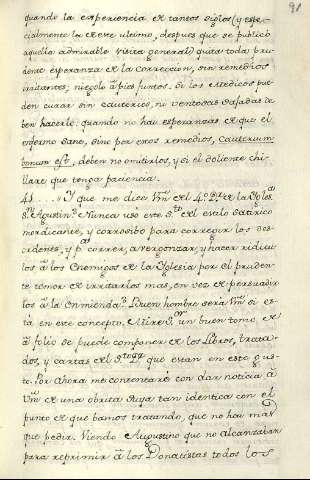 91
quando la experiencia de tantos siglos (y espe-
cialmente la de este ultimo, despues que se publicò
aquella admirable visita general) quita toda pru-
dente esperanza de la correccion, sin remedios
irritantes; niegolo à pies juntos. Si los Medicos pue-
den curar sin cauterios, ni ventosas sajadas de-
ben hacerlo: quando no hai esperanzas de que el
enfermo sane, sino por esos remedios, Cauterium
bonum est, deben no omitirlos, y si el doliente chi-
llare que tenga paciencia.
41 .... Y que me dice Vm. de el 4.º Dr. de la Iglesia
Sn. Agustin? Nunca usó este Sto. de el estilo satirico
mordicante, y corrosibo para corregir los des-
cidentes, y para correr, avergonzar, y hacer ridicu-
los à los Enemigos de la Iglesia por el pruden-
te temor de irritarlos mas, en vez de persuadir-
los à la enmienda? Buen hombre será Vm. si es-
tá en este concepto. Mire Sor. un buen tomo de
à folio se puede componer de los Libros, trata-
dos, y cartas de el Sto. que estan en este gus-
to. Por ahora me contentaré con dar noticia à
Vm. de una obrita suya tan identica con el
punto de que bamos tratando, que no hai mas
que pedir. Viendo Augustino que no alcanzaban
para reprimir à los Donatistas todos los